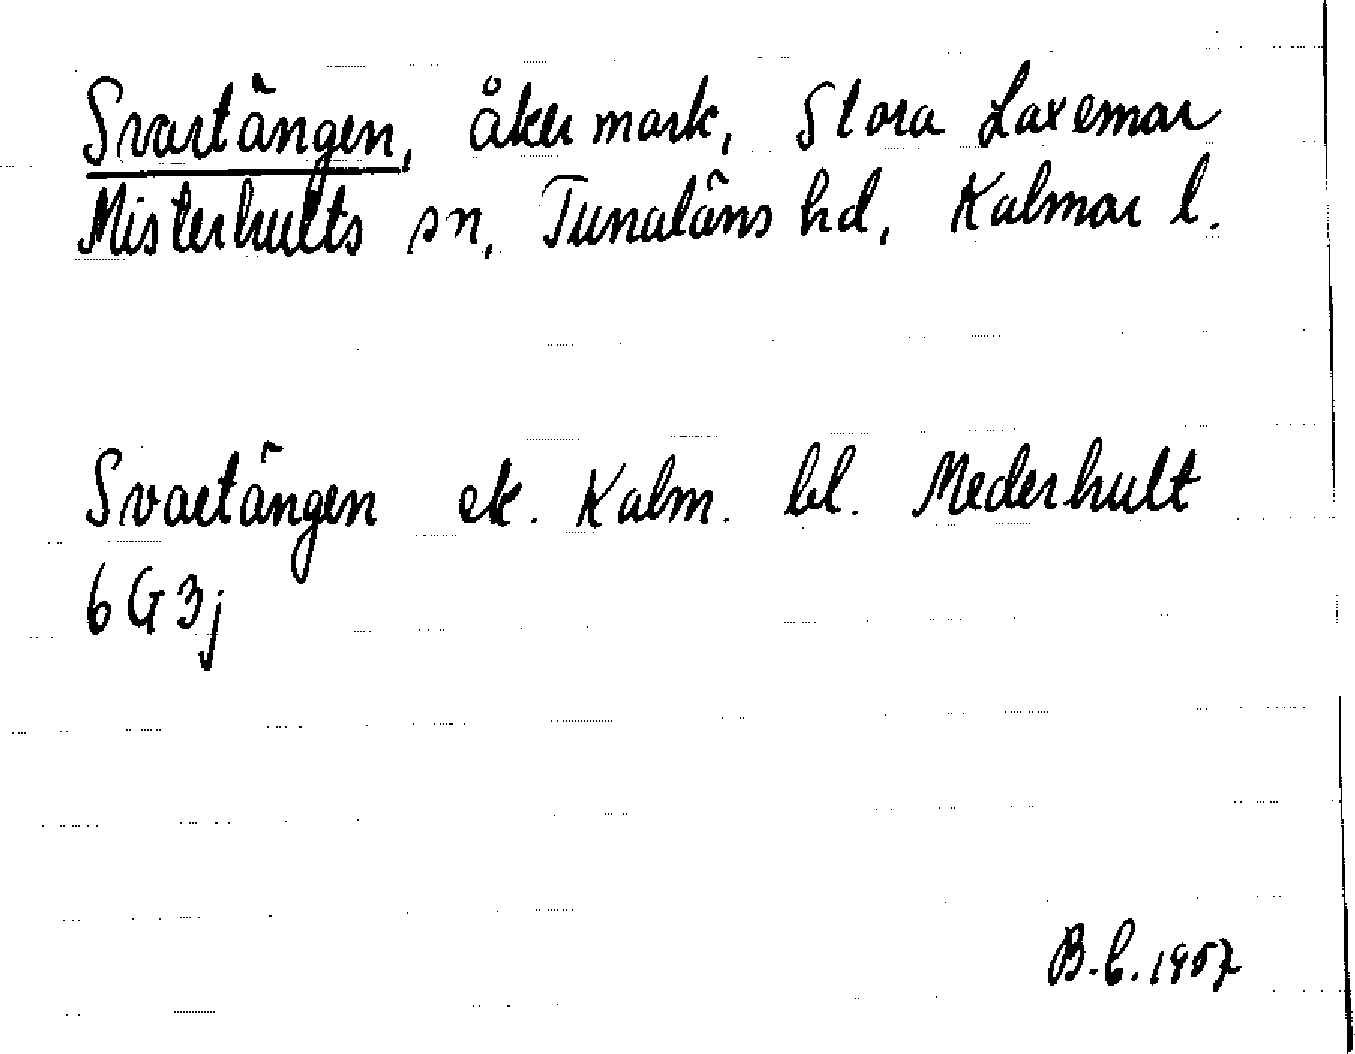 Svartängen, åkermark, Stora Laxemar
Misterhults sn, Tunaläns hd, Kalmar l.
Svartängen ek. Kalm. bl. Mederhult
6G3j
B.C. 1957